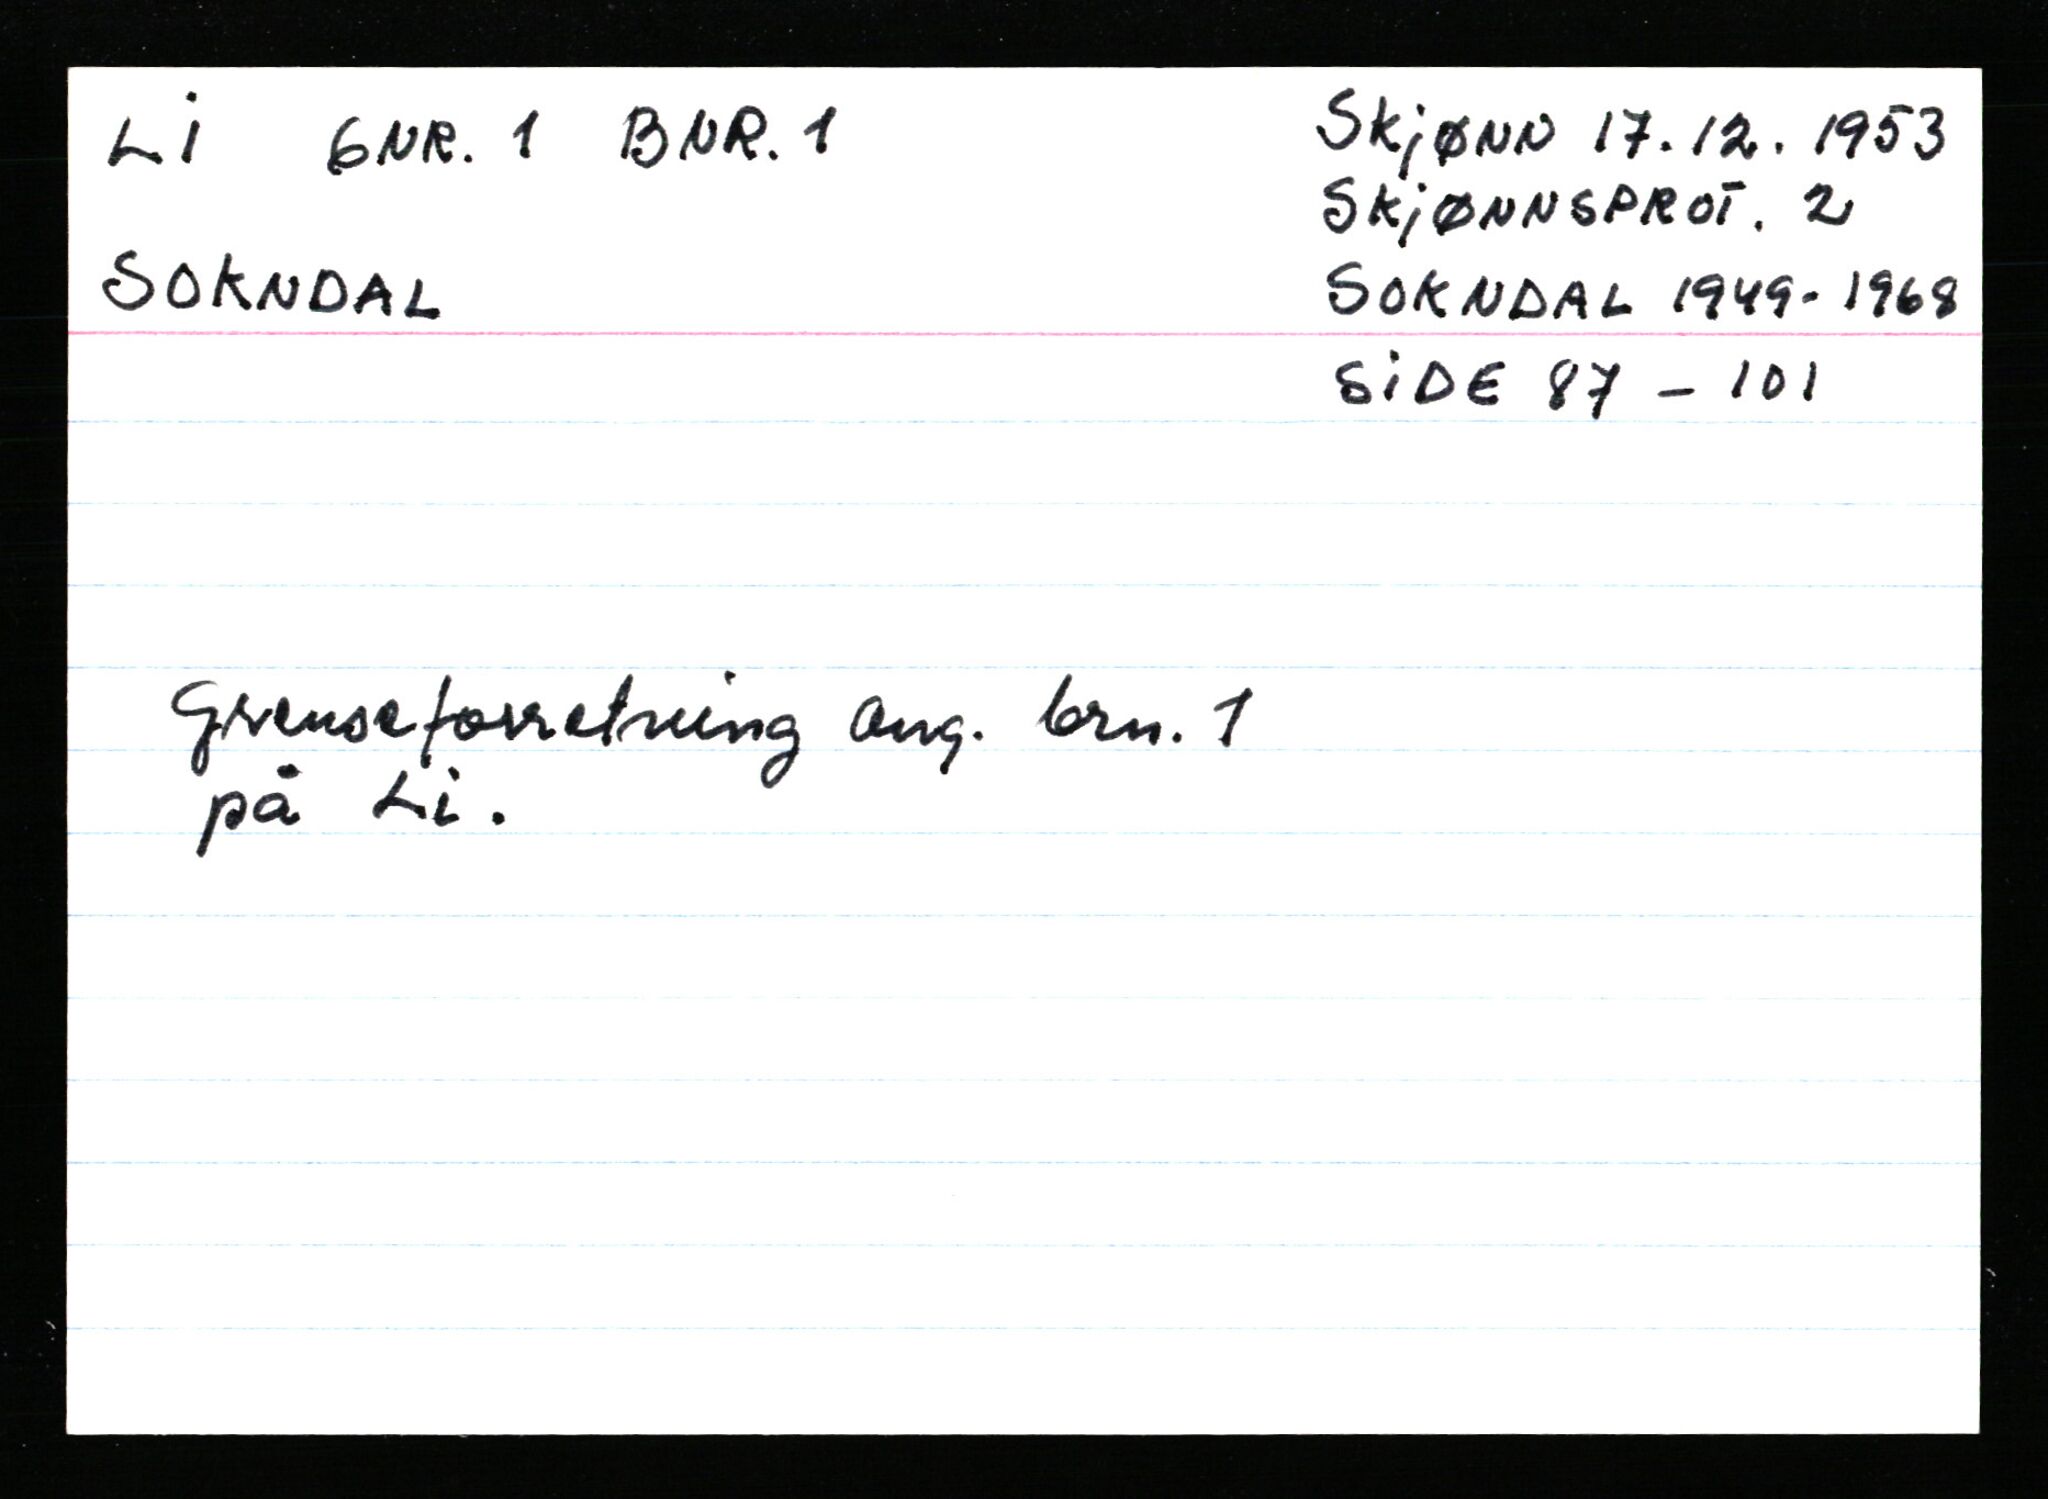 Li GNR. 1 BNR. 1
SOKNDAL
Skjønn 17.12.1953
Skjønnsprot. 2
SOKNDAL 1949-1968
SiDE 87 - 101
Grenseforretning ang. brn. 1
på Li.